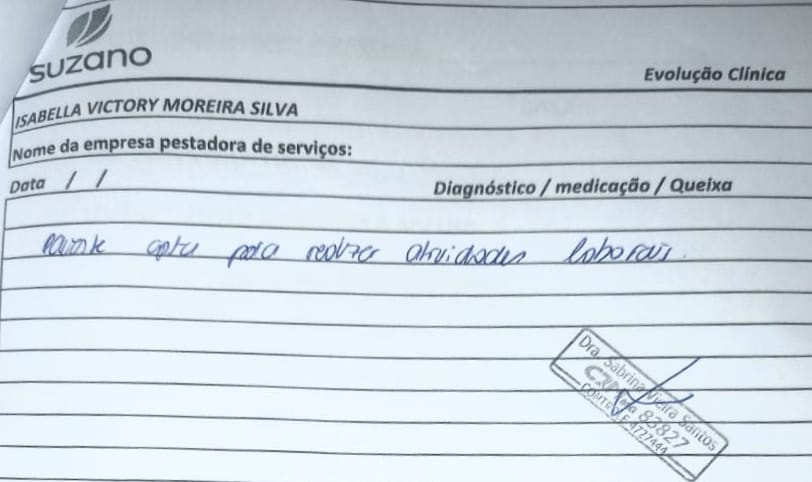 suzano
Evolução Clínica
ISABELLA VICTORY MOREIRA SILVA
Nome da empresa pestadora de serviços:
Data / /
Diagnóstico / medicação / Queixa
paciente apta para realizar atividades laborais.
Dra. Sabrina Vieira Santos
83827
4727444